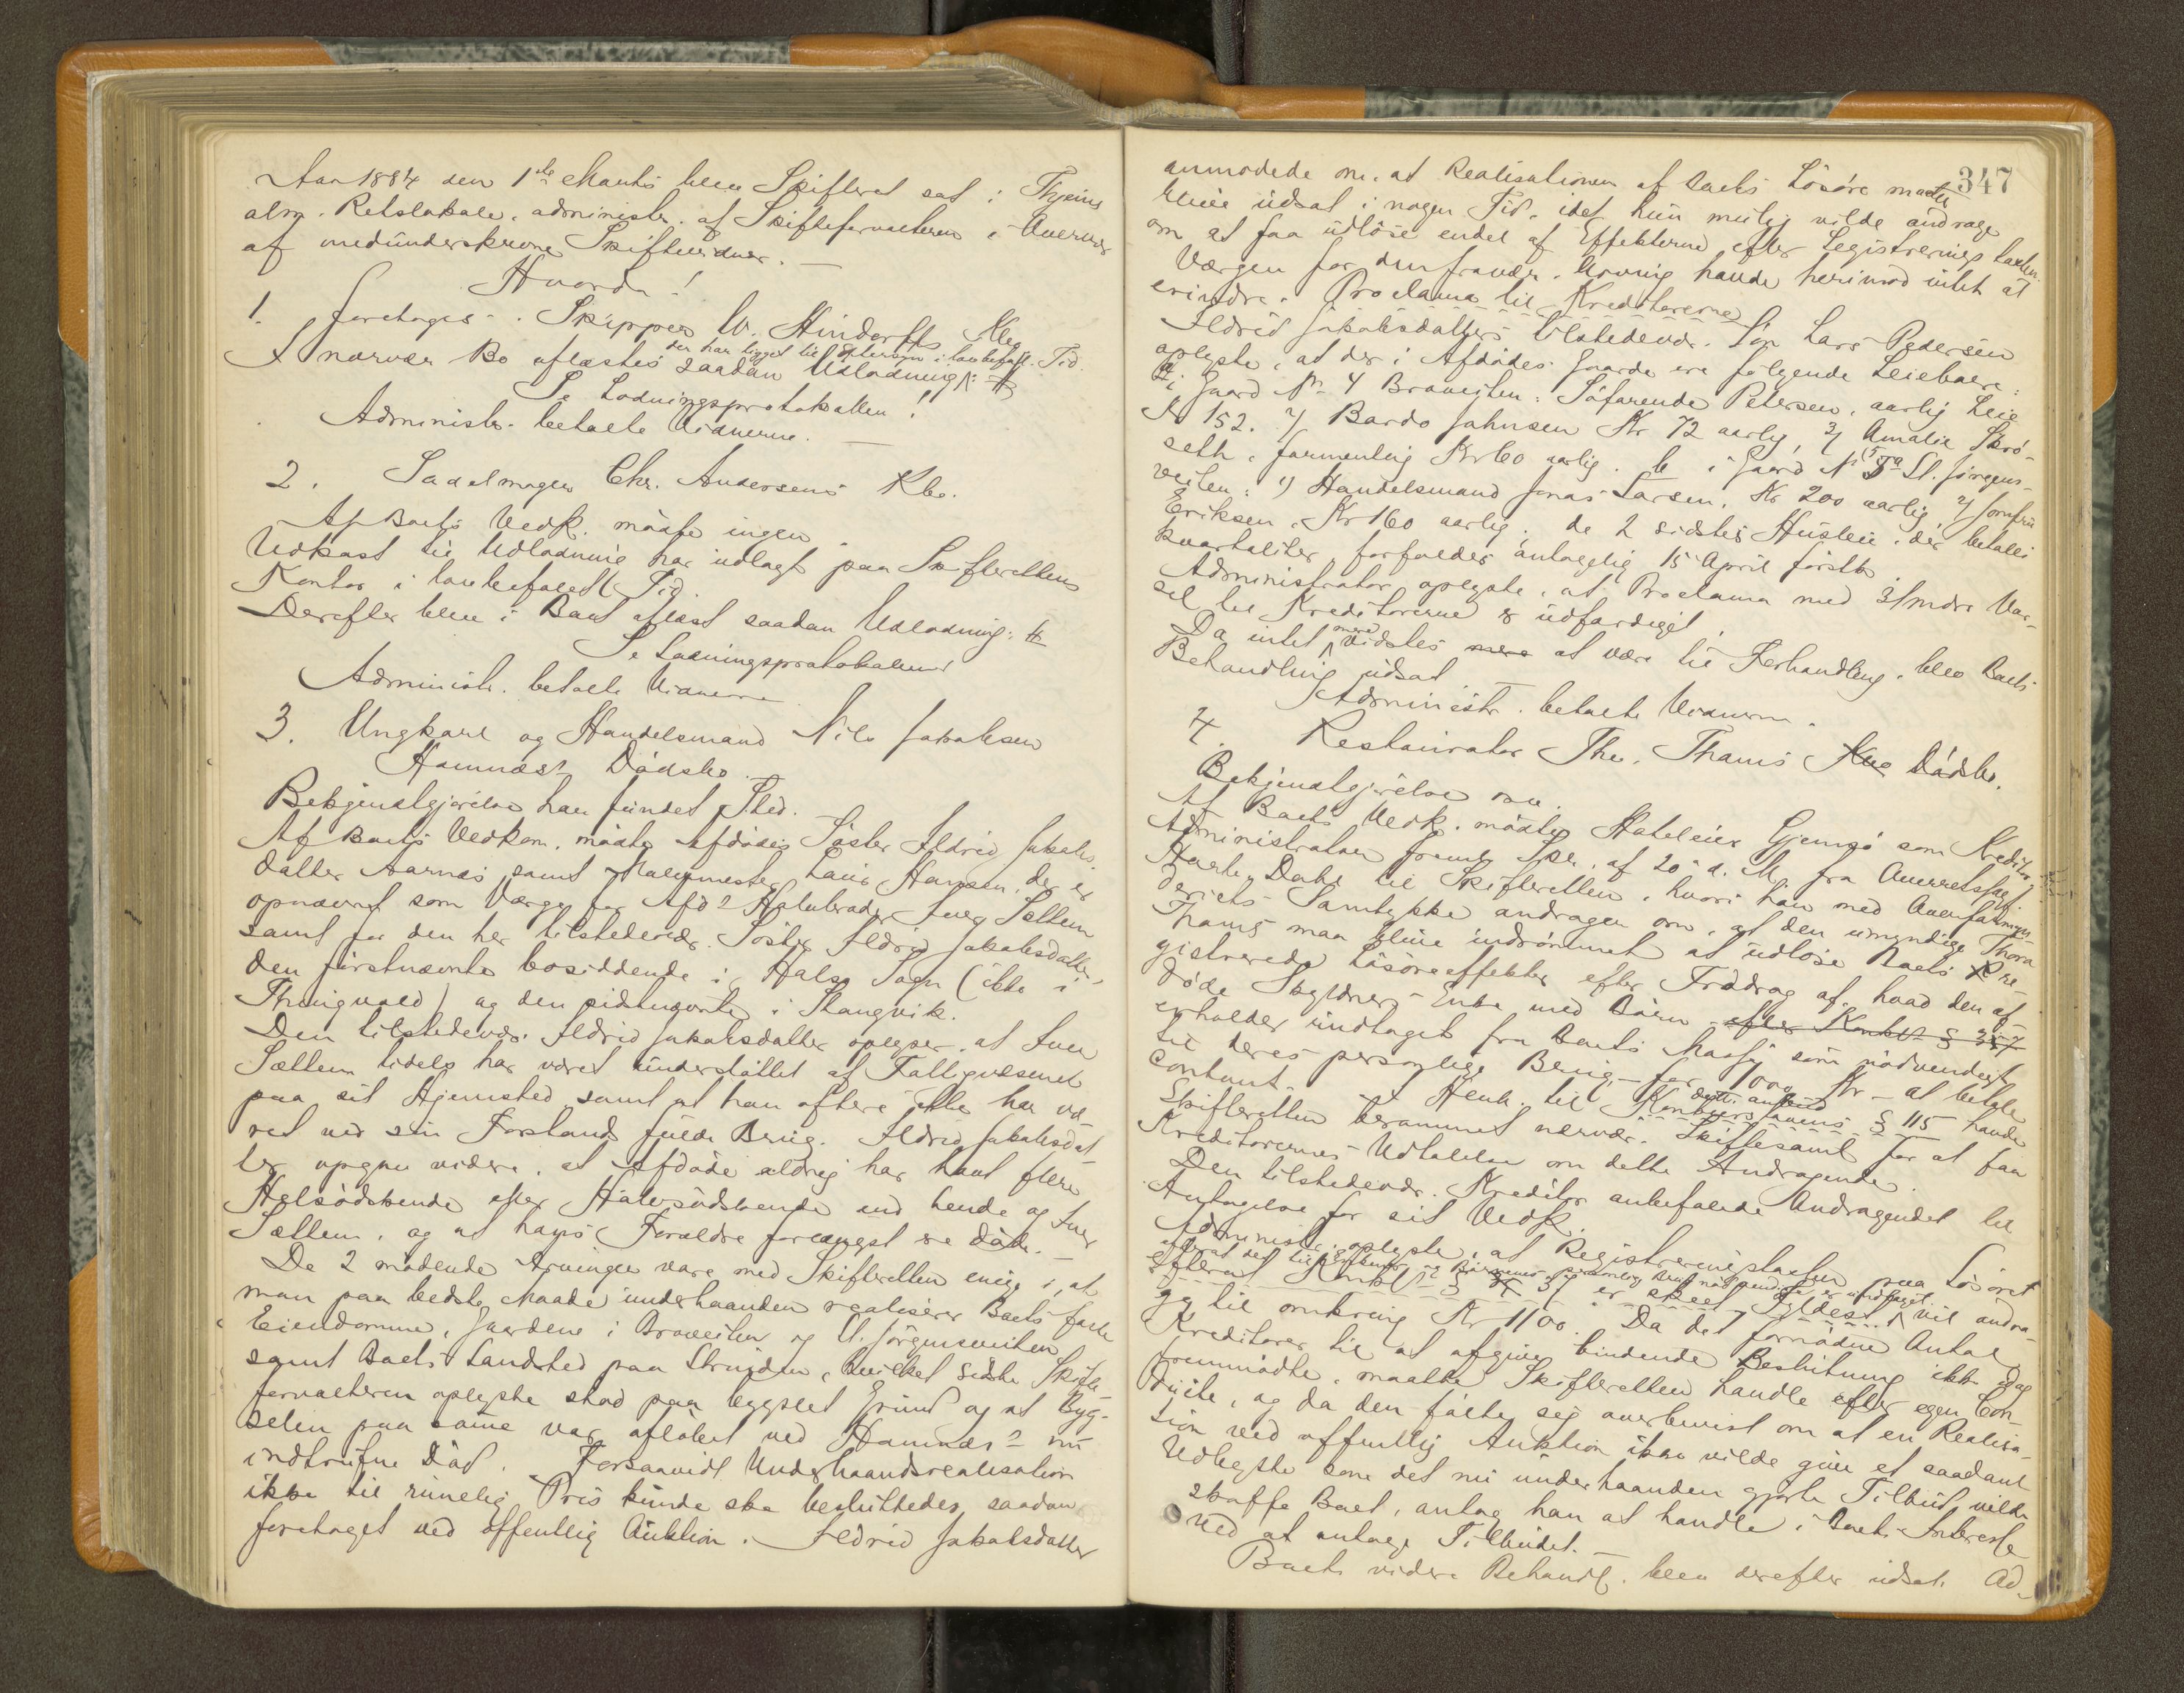 Aar 1884 den 1ste Marts blev Skifteret sat i Thjems
alm. Retslokale, administr. af Skifteforvalteren i Overvær
af medunderskrevne Skiftevidner. —
Hvorda!
1. foretoges Skipper W. Hindorffs Kbo.
I nærvær Bo oplæstes saadan Udlodning, der har ligget til Eftersyn i lovbefalt Tid:
Se Lodningsprotokollen!
Administr. betalte Vidnerne. —
2. Sadelmager Chr. Andersens Kbo.
Af Boets Vedk. mødte ingen
Udkast til Udlodning har udlagt paa Skifterettens
Kontor i lovbefalet Tid.
Derefter blev i Boet oplæst saadan Udlodning:
Se Lodningsprotokollen
Administr. betalte Vidnerne
3. Ungkarl og Handelsmand Nils Jakobsen
Hamnæs's Dødsbo.
Bekjendtgjørelse har fundet Sted.
Af Boets Vedkom. mødte Afdødes Søster Ildrid Jakobs-
datter Aarnæs samt Malermester Lars Hansen, der er
opnævnt som Værge for Afd's Halvbroder Iver Sættem
samt for den her tilstedevær. Søster Ildrid Jakobsdatter,
den førstnævnte bosiddende i Halse Sogn (ikke i
Thingvold) og den sidstnævnte i Stangvik.
Den tilstedevær. Ildrid Jakobsdatter oplyser, at Iver
Sættem tidels har været understøttet af Fattigvæsenet
paa sit Hjemsted samt at han oftere ikke har væ-
ret ved sin Forstands fulde Brug. Ildrid Jakobsdat-
ter opgav videre, at Afdøde aldrig har havt flere
Helsødskende eller Halvsødskende end hende og Iver
Sættem, og at hans Forældre forlængst ere døde. —
De 2 mødende Arvinger vare med Skifteretten enige i, at
man paa bedste Maade underhaanden realiserer Boets faste
Eiendomme, Gaardene i Broveiten og St. Jørgensveiten
samt Boets Landsted paa Strinden, hvilket sidste Skifte-
forvalteren oplyste stod paa bygslet Grund og at Byg-
selen paa samme var afløbet ved Hamnæs's nu
indtrufne Død. Forsaavidt Underhaandsrealisation
ikke til rimelig Pris kunde ske besluttedes saadan
foretaget ved offentlig Auktion. Ildrid Jakobsdatter
347
anmodede om, at Realisationen af Boets Løsøre maatte
blive udsat i nogen Tid, idet hun mulig vilde andrage
om at faa udløse endel af Effekterne efter Registrerings taxten.
Værgen for den fravær. Arving havde herimod intet at
erindre. Proclama til Kreditorerne
Ildrid Jakobsdatters tilstedevær. Søn Lars Pedersen
oplyste, at der i Afdødes Gaarde ere følgende Leieboere:
a, i Gaard No 4 Broveiten: Søfarende Petersen, aarlig Leie
Kr 152. 2) Bardo Johnsen Kr 72 aarlig, 3) Amalie Skrø-
seth, formentlig Kr 60 aarlig. b i Gaard No 5a St. Jørgens-
veiten: 1) Handelsmand Jonas Larsen, Kr 200 aarlig, 2) Jomfru
Eriksen, Kr 160 aarlig; de 2 sidstes Husleie, der betales
kvartaliter, forfalder antagelig 15 April førstk.
Administrator oplyste, at Proclama med 3 Mdrs Var-
sel til Kreditorerne er udfærdiget.
Da intet mere vidstes mere at være til Forhandling, blev Boets
Behandling udsat
Administr. betalte Vidnerne.
4. Restauratør Thv. Thams Kbo Dødsbo.
Bekjendtgjørelse om.
Af Boets Vedk. mødte Hoteleier Gjemsø som Kreditor.
Administrator freml. Skr. af 20 d. M. fra Overretssagf.
Haarte Dahl til Skifteretten, hvori han med Overformyn-
deriets Samtykke andrager om, at den umyndige Thora
Thams maa blive indrømmet at udløse Boets re-
gistrerede Løsøreeffekter efter Fradrag af, hvad den af-
døde Skyldners Enke med Børn efter Konkl § 37
erholder undtaget fra Boets Masse som nødvendigt
til deres personlige Brug – for 1000 Kr – at betale
contant. – I Henh. til Konkurslovens § 115 havde
Skifteretten berammet nærvær. Skiftesaml. for at faa
Kreditorernes Udtalelse om dette Andragende.
Den tilstedevær. Kreditor anbefalede Andragendet til
Antagelse for sit Vedk.
Administr. oplyste, at Registreringstaxten paa Løsøret
efterat det til Enkens og Børnenes personlig Brug nødvendige er undtaget
efterat Konkl. § 37 er skeet Fyldest, vil andra-
ge til omkring Kr 1100. Da det fornødne Antal
Kreditorer til at afgive bindende Beslutning ikke idag
fremmødte, maatte Skifteretten handle efter egen Con-
duite, og da den følte sig overbevist om at en Realisa-
tion ved offentlig Auktion ikke vilde give et saadant
Udbytte som det nu underhaanden gjorte Tilbud vilde
skaffe Boet, antog han at handle i Boets Interesse
ved at antage Tilbudet. —
Boets videre Behandl. blev derefter udsat. Ad-